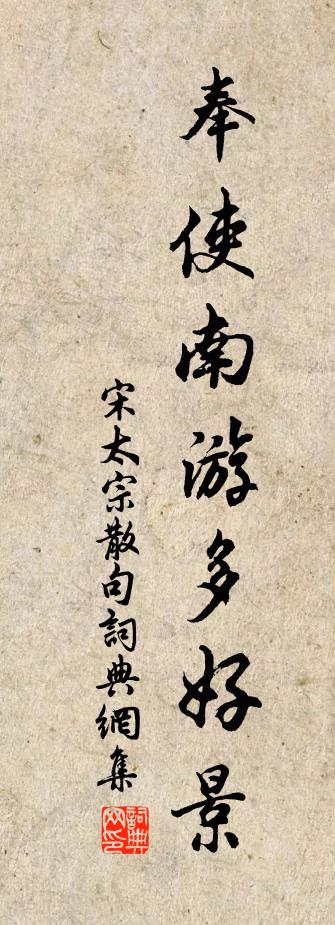 奉使南游多好景
宋太宗散句詞典網集
詞典網印